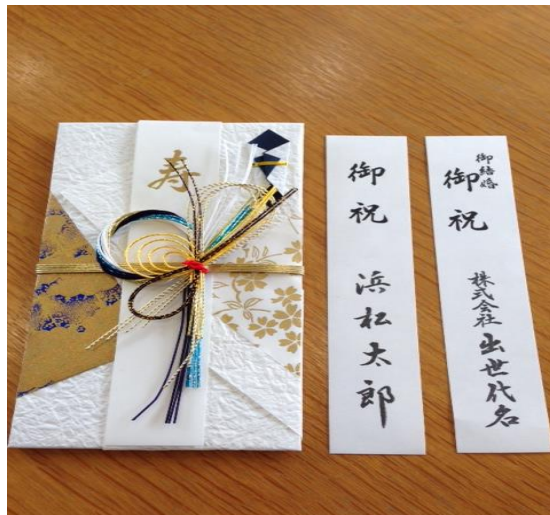 寿
御祝
浜松太郎
御結婚
御祝
株式会社出世代名